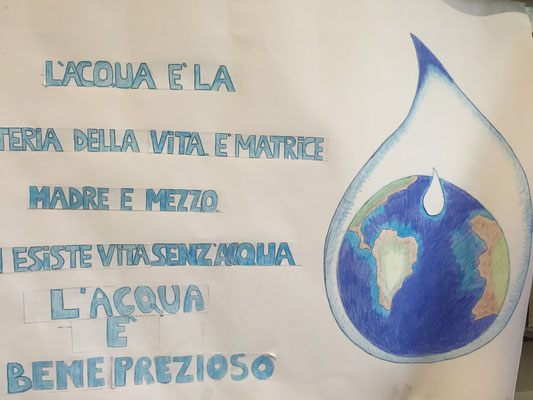 L'ACQUA E' LA
TERIA DELLA VITA E' MATRICE
MADRE E MEZZO
ESISTE VITA SENZ'ACQUA
L'ACQUA
E'
BENE PREZIOSO